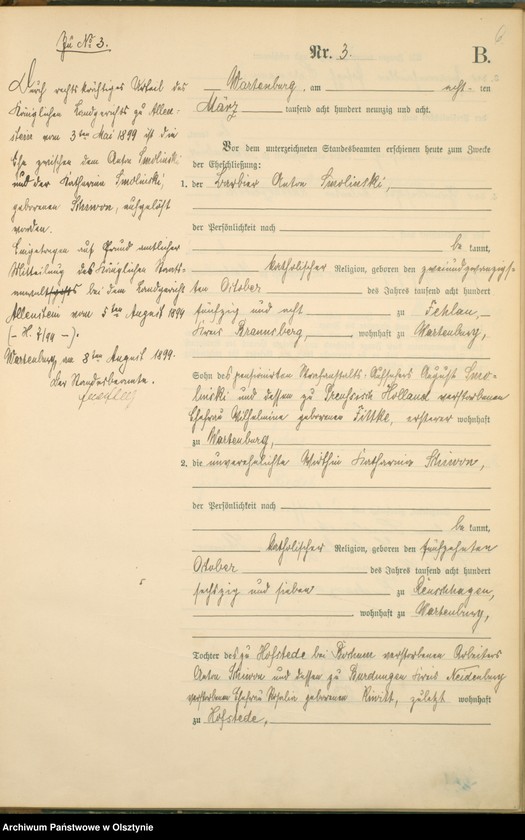 Zu No 3.
Durch rechtskräftiges Urteil des
Königlichen Landgerichts zu Allen-
stein vom 3ten Mai 1899 ist die
Ehe zwischen dem Anton Smolinski
und der Katharina Smolinski,
geborenen Skiwon, aufgelöst
worden.
Eingetragen auf Grund amtlicher
Mitteilung des Königlichen Staats-
anwalts bei dem Landgericht
Allenstein vom 5ten August 1899
Wartenburg, am 8ten August 1899.
Der Standesbeamte.
Nr. 3.
B.
Wartenburg, am acht-ten
März tausend acht hundert neunzig und acht.
Vor dem unterzeichneten Standesbeamten erschienen heute zum Zwecke
der Eheschließung:
1. der Barbier Anton Smolinski,
der Persönlichkeit nach
be kannt,
katholischer Religion, geboren den zweiundzwanzigs-
ten October des Jahres tausend acht hundert
fünfzig und acht zu
Kreis Braunsberg, wohnhaft zu Wartenburg,
Sohn des pensionirten Strafanstalts-Aufsehers August Smo-
linski und dessen zu Preussisch Holland verstorbenen
Ehefrau Wilhelmine geborenen Fittke, ersterer wohnhaft
zu Wartenburg,
2. die unverehelichte Wirthin Katharina Skiwon,
der Persönlichkeit nach
be kannt,
katholischer Religion, geboren den fünfzehnten
October des Jahres tausend acht hundert
sechszig und sieben zu Reuschhagen,
wohnhaft zu Wartenburg,
Tochter des zu Hofstede bei Bochum verstorbenen Arbeiters
Anton Skiwon und dessen zu Burdungen Kreis Neidenburg
verstorbenen Ehefrau Rosalia geborenen zuletzt wohnhaft
zu Hofstede,
Archiwum Państwowe w Olsztynie